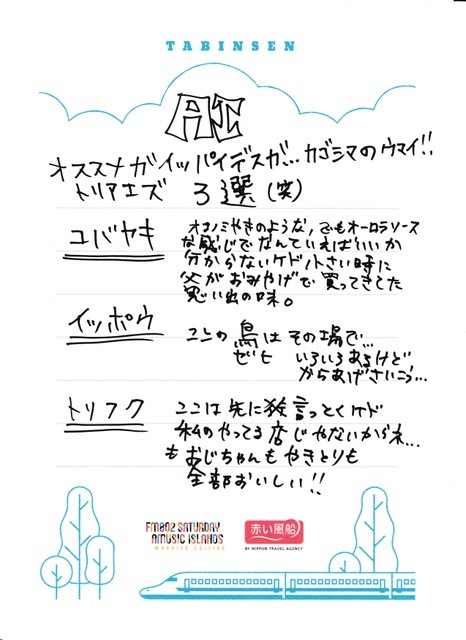 TABINSEN
AI
オススメガイッパイデスガ… カゴシマのウマイ!!
トリアエズ 3選(笑)
コバヤキ
オコノミやきのような、でもオーロラソース
な感じでなんていえばいいか
分からないケド小さい時に
父がおみやげで買ってきてた
思い出の味。
イッポウ
ココの鳥はその場で…
ぜひ いろいろあるけど
からあげさいこう…
トリフク
ココは先に 言っとくケド
私のやってる店じゃないからネ…
おじちゃんもやきとりも
全部おいしい!!
FM802 SATURDAY
AMUSIC ISLANDS
MORNING EDITION
赤い風船
BY NIPPON TRAVEL AGENCY